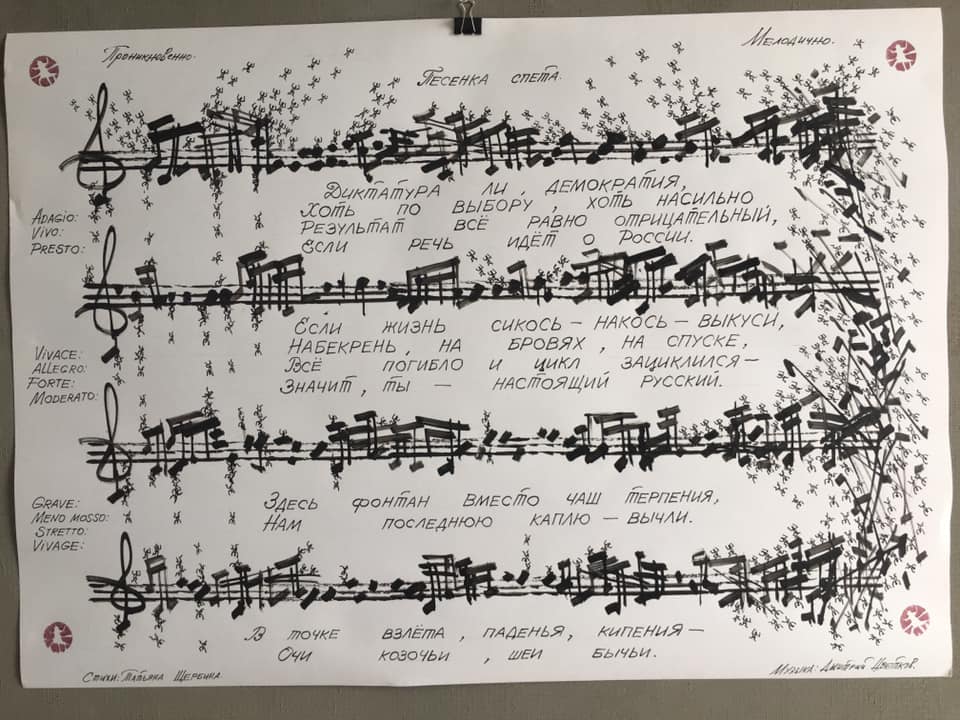 Проникновенно.
Мелодично.
Песенка спета.
Диктатура ли, демократия,
Хоть по выбору, хоть насильно
Результат всё равно отрицательный,
Если речь идёт о России.
Adagio:
Vivo:
Presto:
Если жизнь сикось – накось – выкуси,
Набекрень, на бровях, на спуске,
Всё погибло и цикл зациклился –
Значит, ты – настоящий русский.
Vivace:
Allegro:
Forte:
Moderato:
Здесь фонтан вместо чаш терпения,
Нам последнюю каплю – вычли.
Grave:
Meno mosso:
Stretto:
Vivage:
В точке взлёта, паденья, кипения –
Очи козочьи, шеи бычьи.
Стихи: Татьяна Щербина
Музыка: Дмитрий Цветков.